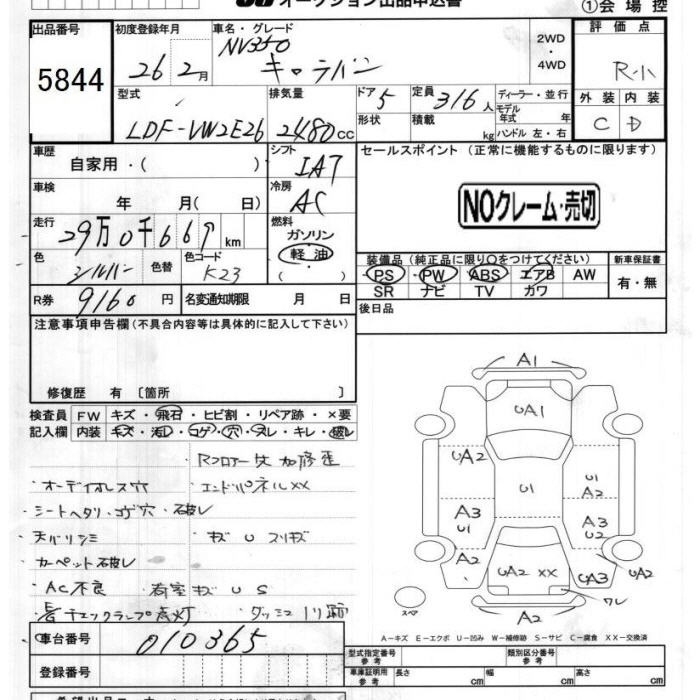 オークション出品申込書
①会場控
出品番号
5844
初度登録年月
26年2月
車名・グレード
NV350
キャラバン
2WD
・
4WD
評価点
R小
外装 内装
C D
型式
LDF-VW2E26
排気量
2480cc
ドア
5
形状
定員
3/6人
積載
kg
ディーラー・並行
モデル
年式 年
ハンドル 左・右
車歴
自家用・( )
シフト
IAT
車検
年 月( 日)
冷房
AC
走行
29万0千669km
燃料
ガソリン
軽油
( )
色
シルバー
色替
色コード
K23
R券
9160円
名変通知期限 月 日
セールスポイント(正常に機能するものに限ります)
NOクレーム・売切
装備品(純正品に限り○をつけてください)
PS PW ABS エアB AW
SR ナビ TV カワ
新車保証書
有・無
後日品
注意事項申告欄(不具合内容等は具体的に記入して下さい)
修復歴 有〔箇所 〕
検査員
記入欄
FW キズ・飛石・ヒビ割・リペア跡・×要
内装 キズ・汚レ・コゲ・穴・スレ・キレ・破レ
Rフロアー 加修歪
オーディオレス穴 エンドパネルXX
シートヘタリ・コゲ穴・破レ
天バリシミ キズ U スリキズ
カーペット破レ
AC不良 荷室キズ U S
チェックランプ点灯 ダッシュ
A1
UA1
UA2
U1
U1
A2
A3
U1
A3
U2
A2
UA2 XX
UA3
ワレ
A2
スペア
A-キズ E-エクボ U-凹み W-補修跡 S-サビ C-腐食 XX-交換済
車台番号
010365
登録番号
型式指定番号
参考
類別区分番号
参考
車庫証明用
参考
長さ cm 幅 cm 高さ cm